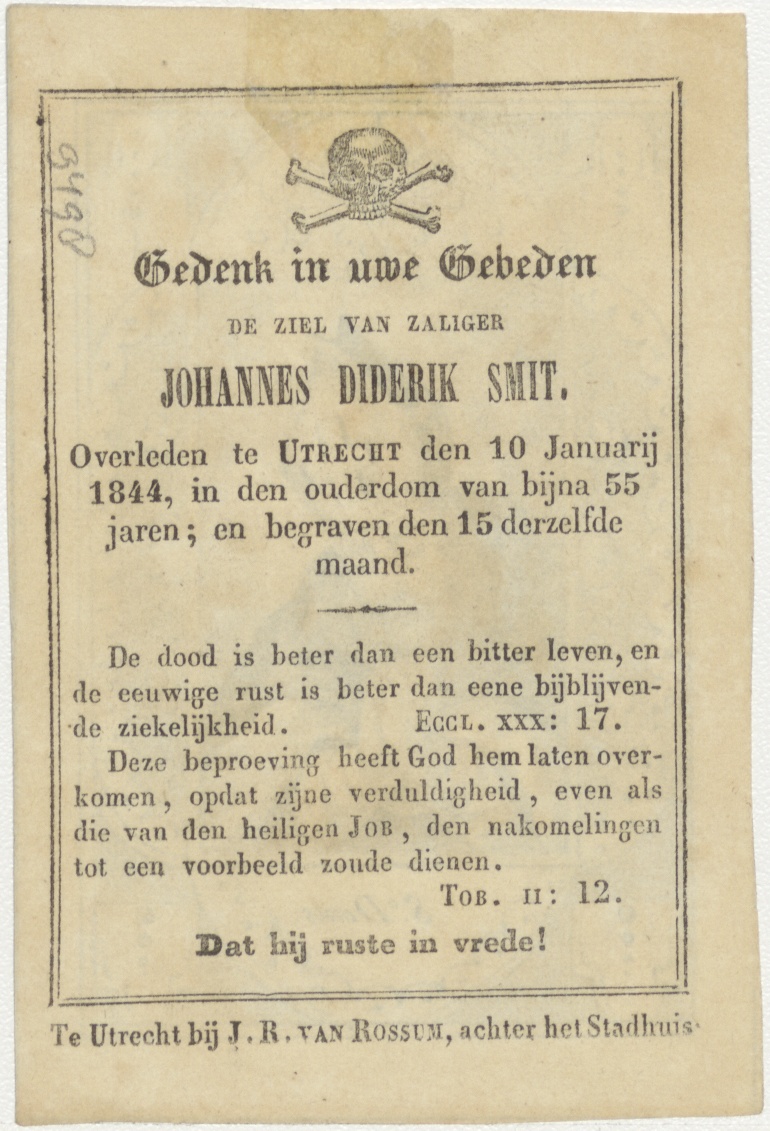 9498
Gedenk in uwe Gebeden
DE ZIEL VAN ZALIGER
JOHANNES DIDERIK SMIT.
Overleden te UTRECHT den 10 Januarij
1844, in den ouderdom van bijna 55
jaren; en begraven den 15 derzelfde
maand.
De dood is beter dan een bitter leven, en
de eeuwige rust is beter dan eene bijblijven-
de ziekelijkheid. ECCL. XXX: 17.
Deze beproeving heeft God hem laten over-
komen, opdat zijne verduldigheid, even als
die van den heiligen JOB, den nakomelingen
tot een voorbeeld zoude dienen.
TOB. II: 12.
Dat hij ruste in vrede!
Te Utrecht bij J. R. VAN ROSSUM, achter het Stadhuis